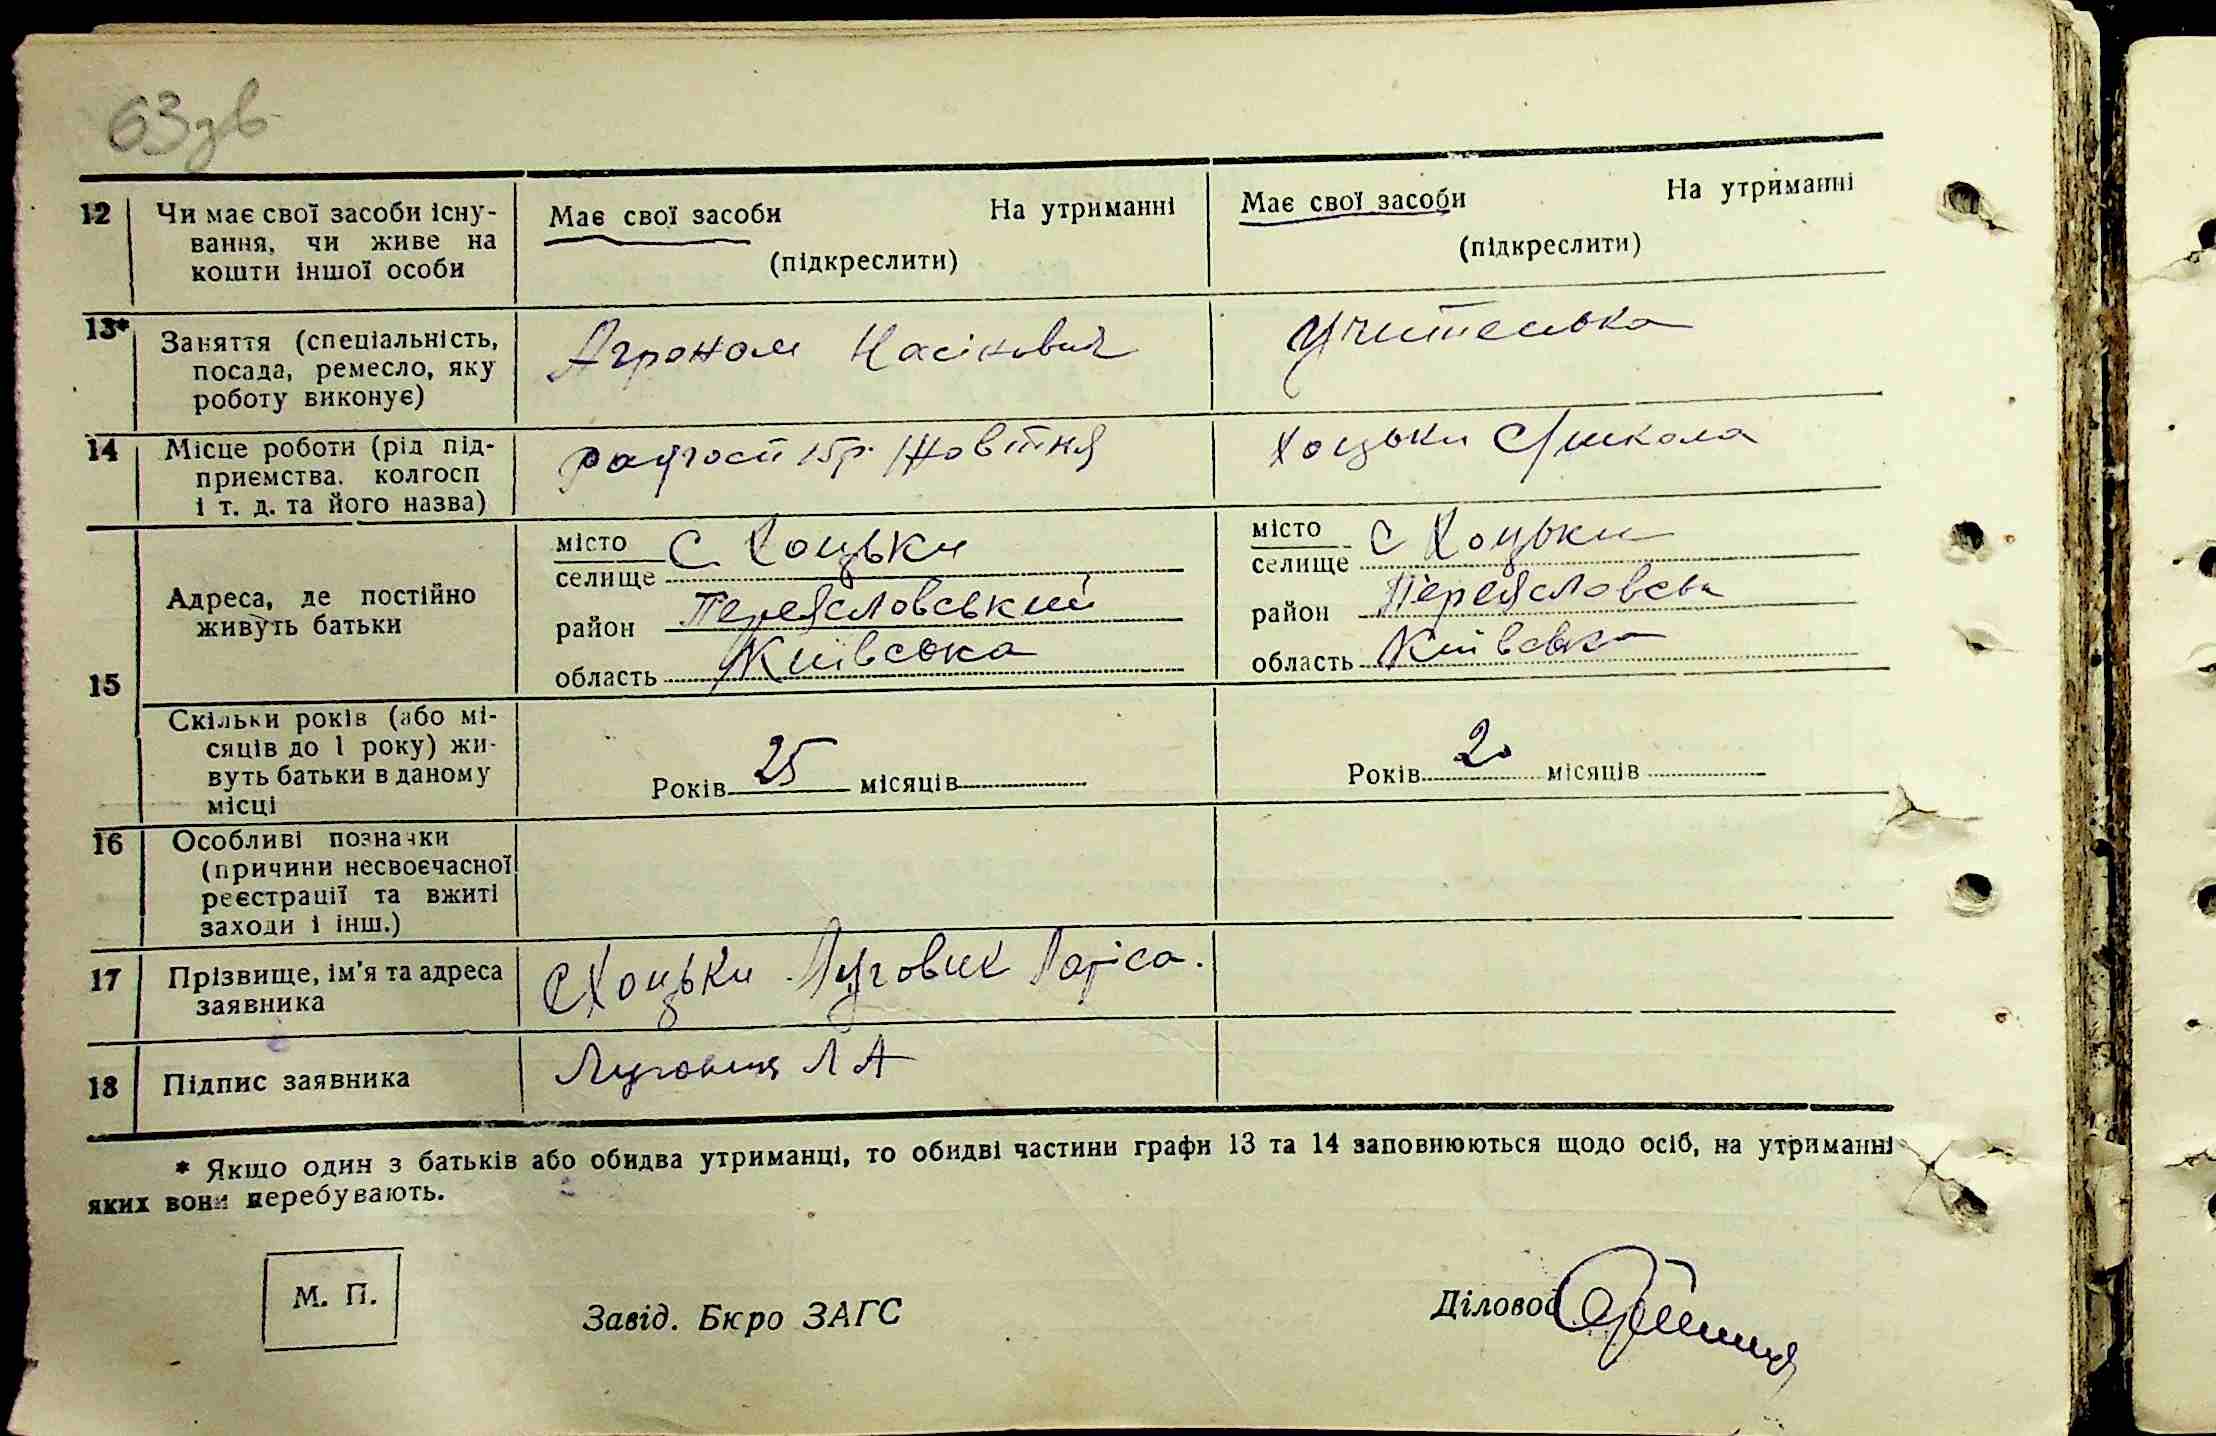 63зв
12 Чи має свої засоби існу-
вання, чи живе на
кошти іншої особи
Має свої засоби На утриманні
(підкреслити)
Має свої засоби На утриманні
(підкреслити)
13* Заняття (спеціальність,
посада, ремесло, яку
роботу виконує)
Агроном
Учителька
14 Місце роботи (рід під-
приємства. колгосп
і т. д. та його назва)
Жовтня
Хоцьки С/школа
15 Адреса, де постійно
живуть батьки
місто
селище с Хоцьки
район Переясловський
область Київська
місто
селище с Хоцьки
район Переясловськ
область Київська
Скільки років (або мі-
сяців до 1 року) жи-
вуть батьки в даному
місці
Років 25 місяців
Років 20 місяців
16 Особливі позначки
(причини несвоєчасної
реєстрації та вжиті
заходи і інш.)
17 Прізвище, ім'я та адреса
заявника
с Хоцьки Луговик Лариса.
18 Підпис заявника
Л А
* Якщо один з батьків або обидва утриманці, то обидві частини графи 13 та 14 заповнюються щодо осіб, на утриманні
яких вони перебувають.
М. П.
Завід. Бюро ЗАГС
Діловод